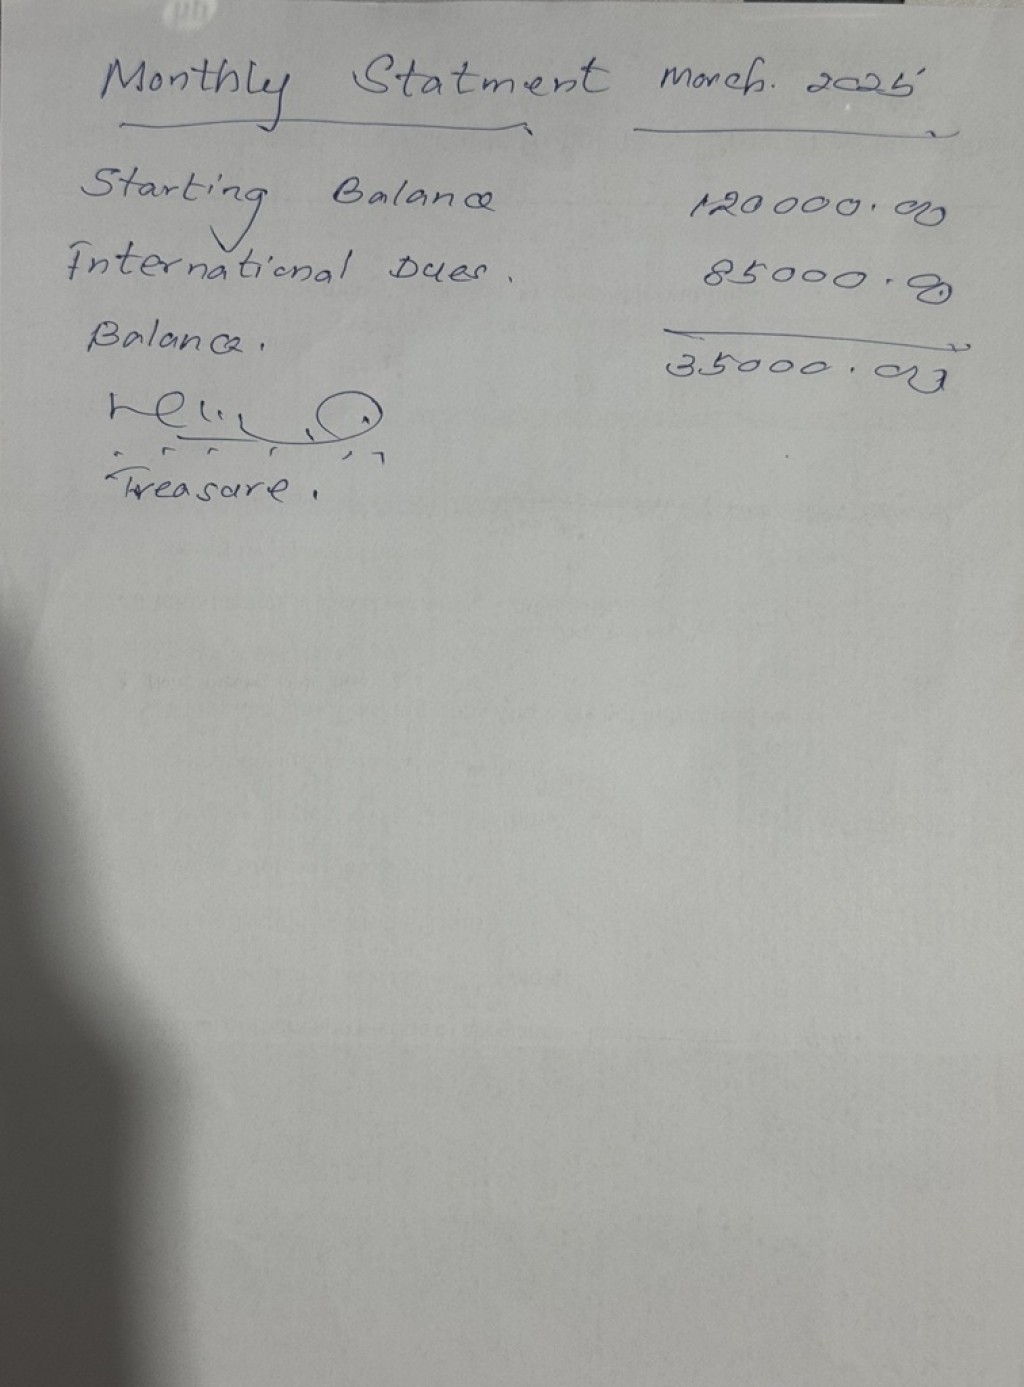 Monthly Statment March. 2025
Starting Balance 120000.00
International Dues. 85000.00
Balance. 35000.00
Treasure.